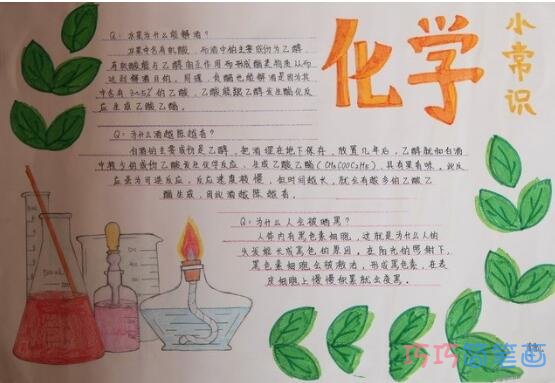 化学
小常识
Q：水果为什么能解酒？
水果中含有机酸，而酒中的主要成份为乙醇，
有机酸能与乙醇相互作用而形成酯类物质从而
达到解酒目的，同理，食醋也能解酒是因为其
中含有3%-5%的乙酸，乙酸能跟乙醇发生酯化反
应生成乙酸乙酯。
Q：为什么酒越陈越香？
白酒的主要成份是乙醇，把酒埋在地下保存，放置几年后，乙醇就和白酒
中较少的成份乙酸发生化学反应，生成乙酸乙酯（CH3COOC2H5），具有果香味。此反
应虽为可逆反应，反应速度较慢，但时间越长，就会有越多的乙酸乙
酯生成，因此酒越陈越香。
Q：为什么人会被晒黑？
人体内有黑色素细胞，这就是为什么人的
头发能长成黑色的原因。在阳光的照射下，
黑色素细胞会被激活，形成黑色素，在表
皮细胞上慢慢积累就会变黑。
巧巧简笔画